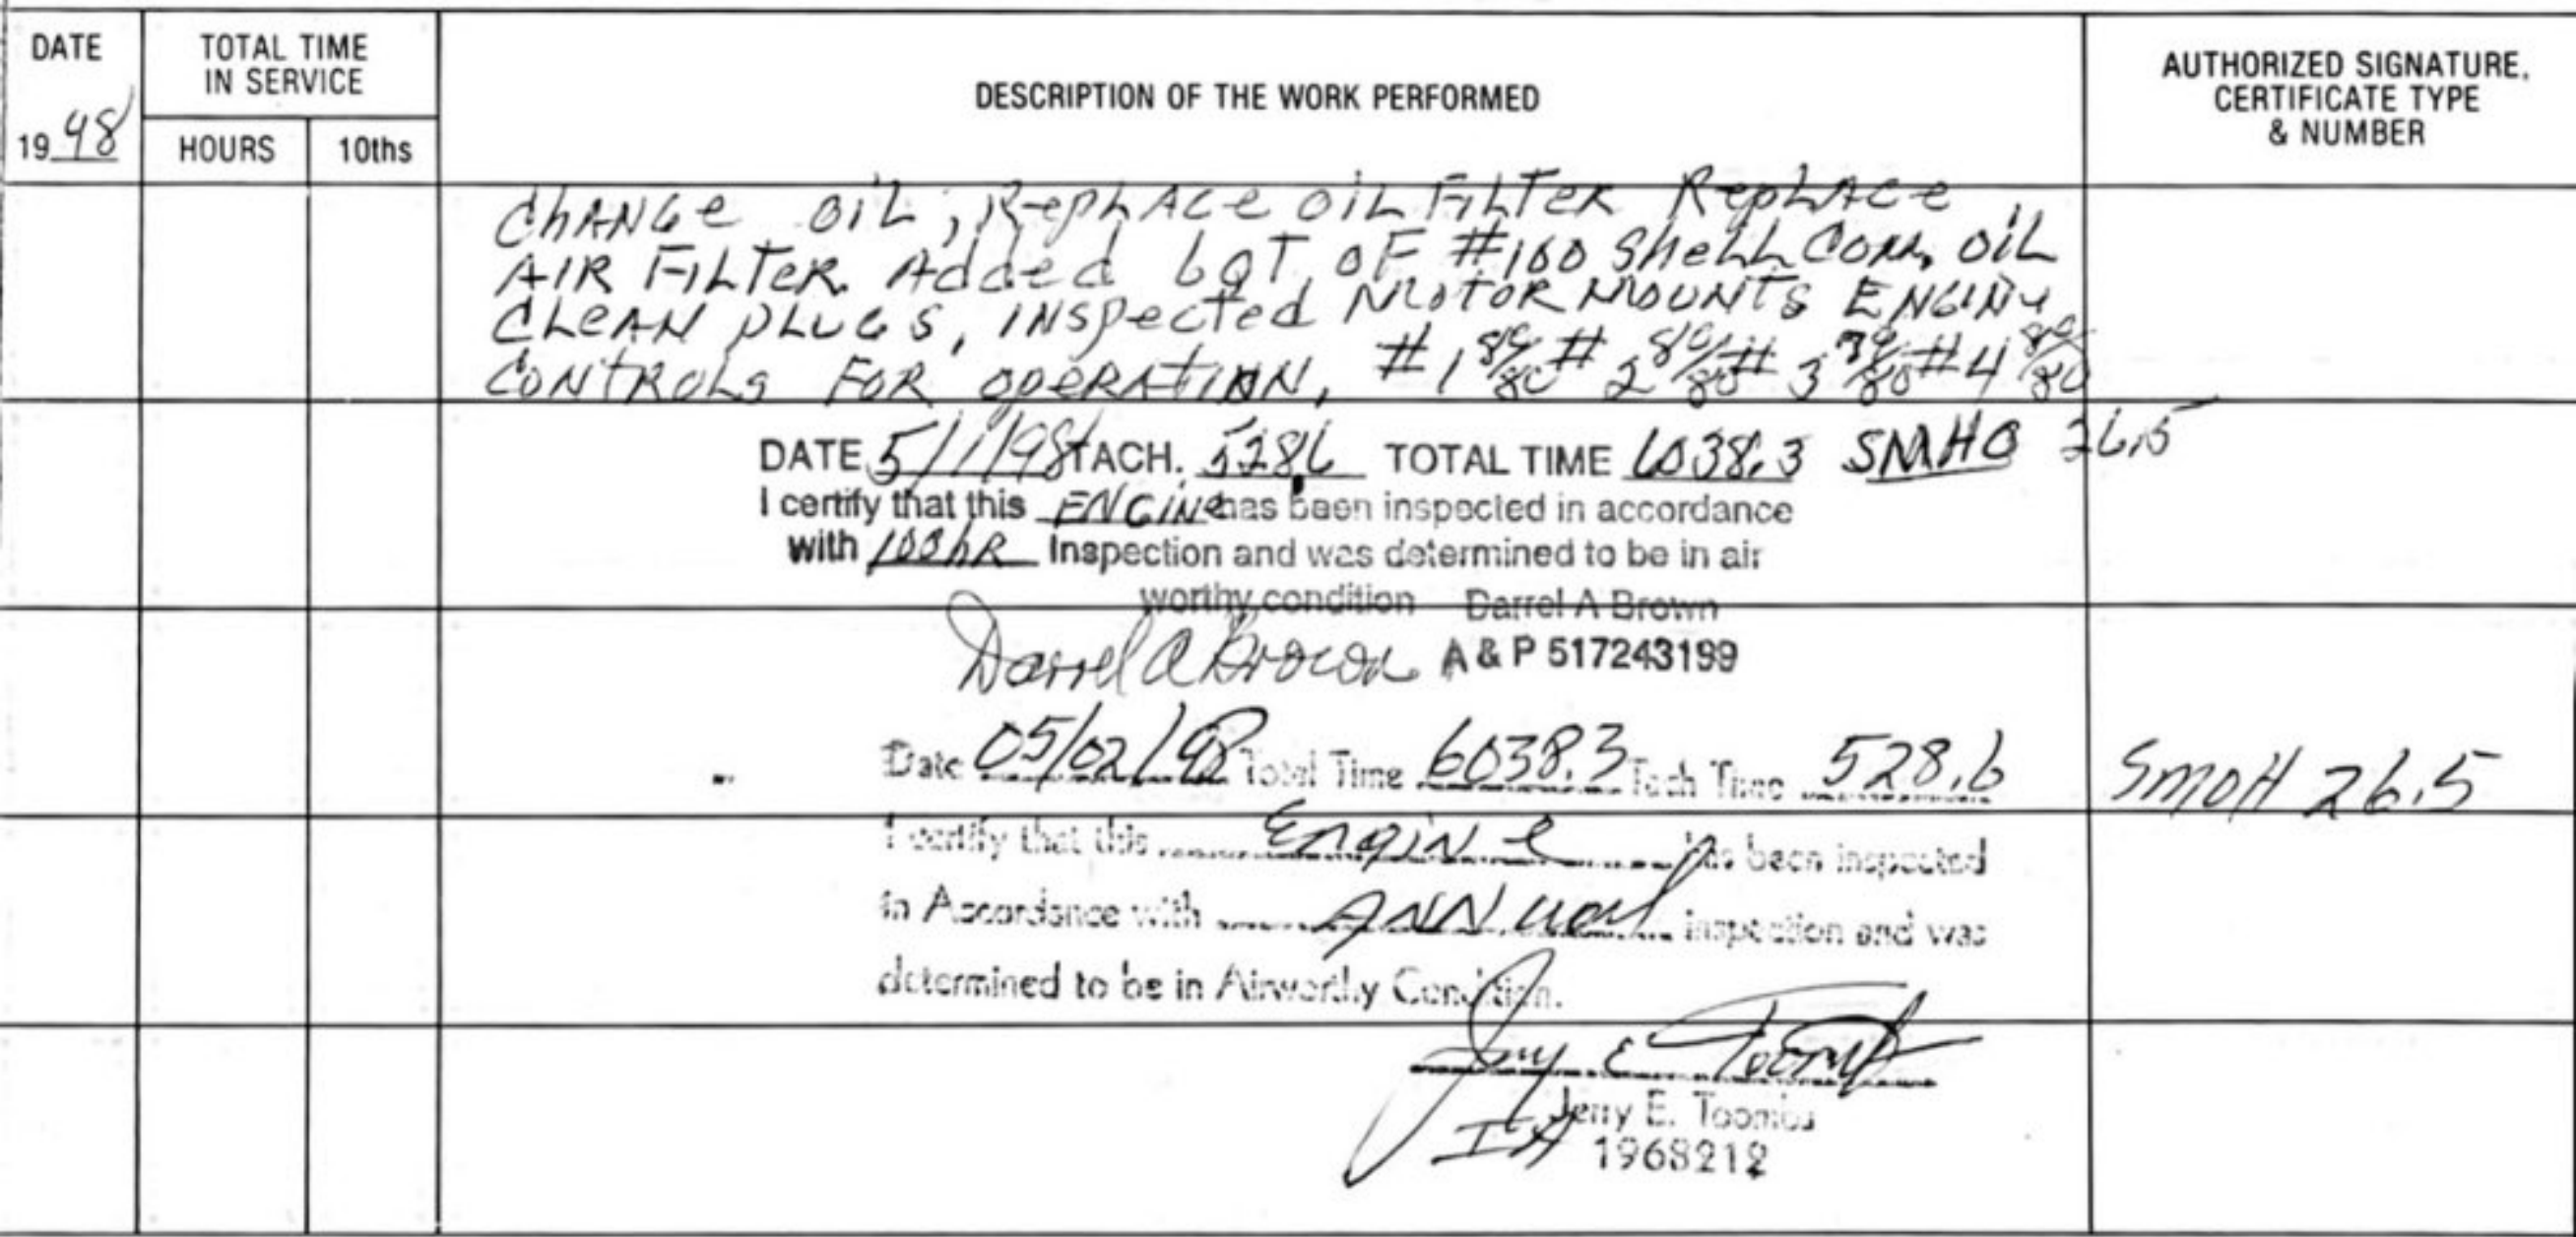 DATE
TOTAL TIME
IN SERVICE
DESCRIPTION OF THE WORK PERFORMED
AUTHORIZED SIGNATURE,
CERTIFICATE TYPE
& NUMBER
1998
HOURS
10ths
CHANGE OIL, REPLACE OIL FILTER REPLACE
AIR FILTER. Added 6QT. OF #100 SHELL COM. OIL
CLEAN PLUGS, INSpected MOTOR MOUNTS ENGINE
CONTROLS FOR OPERATION, #1 /80 #2 /80 #3 /80 #4 /80
DATE 5/1/98 TACH. 528.6 TOTAL TIME 6038.3 SMHO 26.5
I certify that this ENGINE has been inspected in accordance
with 100hR Inspection and was determined to be in air
worthy condition Darrel A Brown
Darrel A Brown A & P 517243199
Date 05/02/98 Total Time 6038.3 Tach Time 528.6 SMOH 26.5
I certify that this Engine has been inspected
in Accordance with ANNual inspection and was
determined to be in Airworthy Condition.
Jerry E Toombs
Jerry E. Toombs
IA 1968212